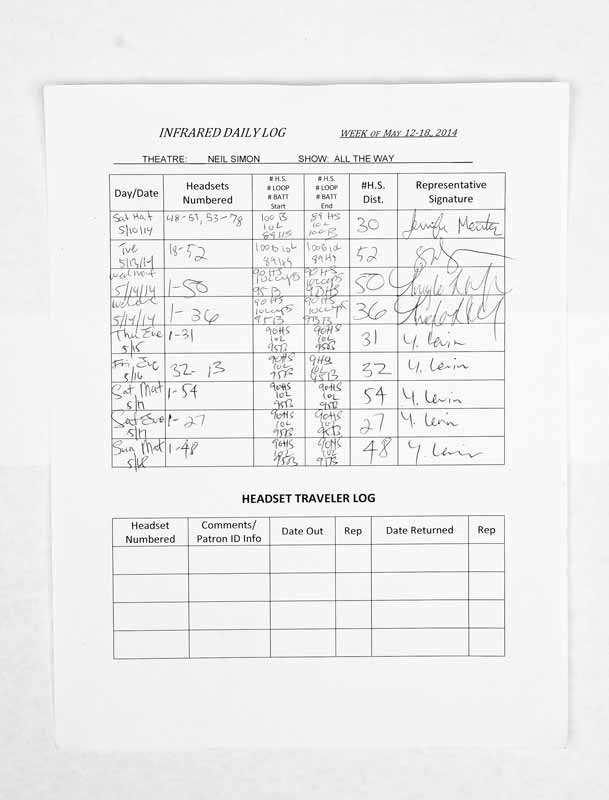 INFRARED DAILY LOG WEEK OF MAY 12-18, 2014
THEATRE: NEIL SIMON SHOW: ALL THE WAY
Day/Date Headsets Numbered # H.S. # LOOP # BATT Start # H.S. # LOOP # BATT End #H.S. Dist. Representative Signature
Sat Mat 5/10/14 48-51, 53-78 100 B 10L 89 HS 89 HS 10L 100 B 30
Tue 5/13/14 18-52 100B 10L 89HS 100B 10L 89HS 52
5/14/14 1-50 90HS 95B 90HS 50
5/14/14 1-36 90HS 95B 90HS 36
Thu Eve 5/15 1-31 90HS 10L 95B 90HS 10L 95B 31 Y. Levin
Fri Eve 5/16 32-13 90HS 10L 95B 9HS 10L 95B 32 Y. Levin
Sat Mat 5/17 1-54 90HS 10L 95B 90HS 10L 95B 54 Y. Levin
Sat Eve 5/17 1-27 90HS 10L 95B 90HS 10L 95B 27 Y. Levin
Sun Mat 5/18 1-48 90HS 10L 95B 90HS 10L 95B 48 Y. Levin
HEADSET TRAVELER LOG
Headset Numbered Comments/ Patron ID Info Date Out Rep Date Returned Rep